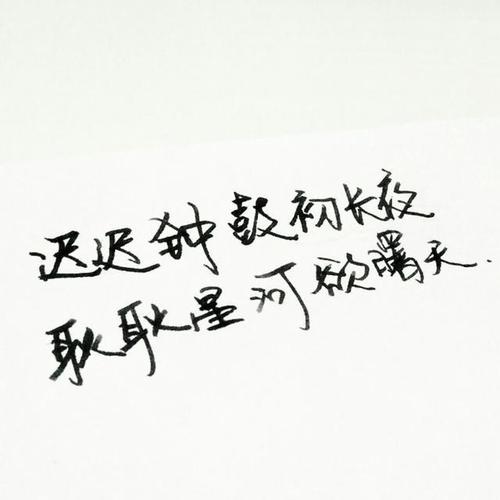 迟迟钟鼓初长夜
耿耿星河欲曙天.